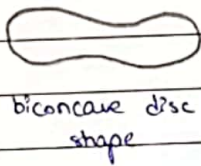 biconcave disc
shape